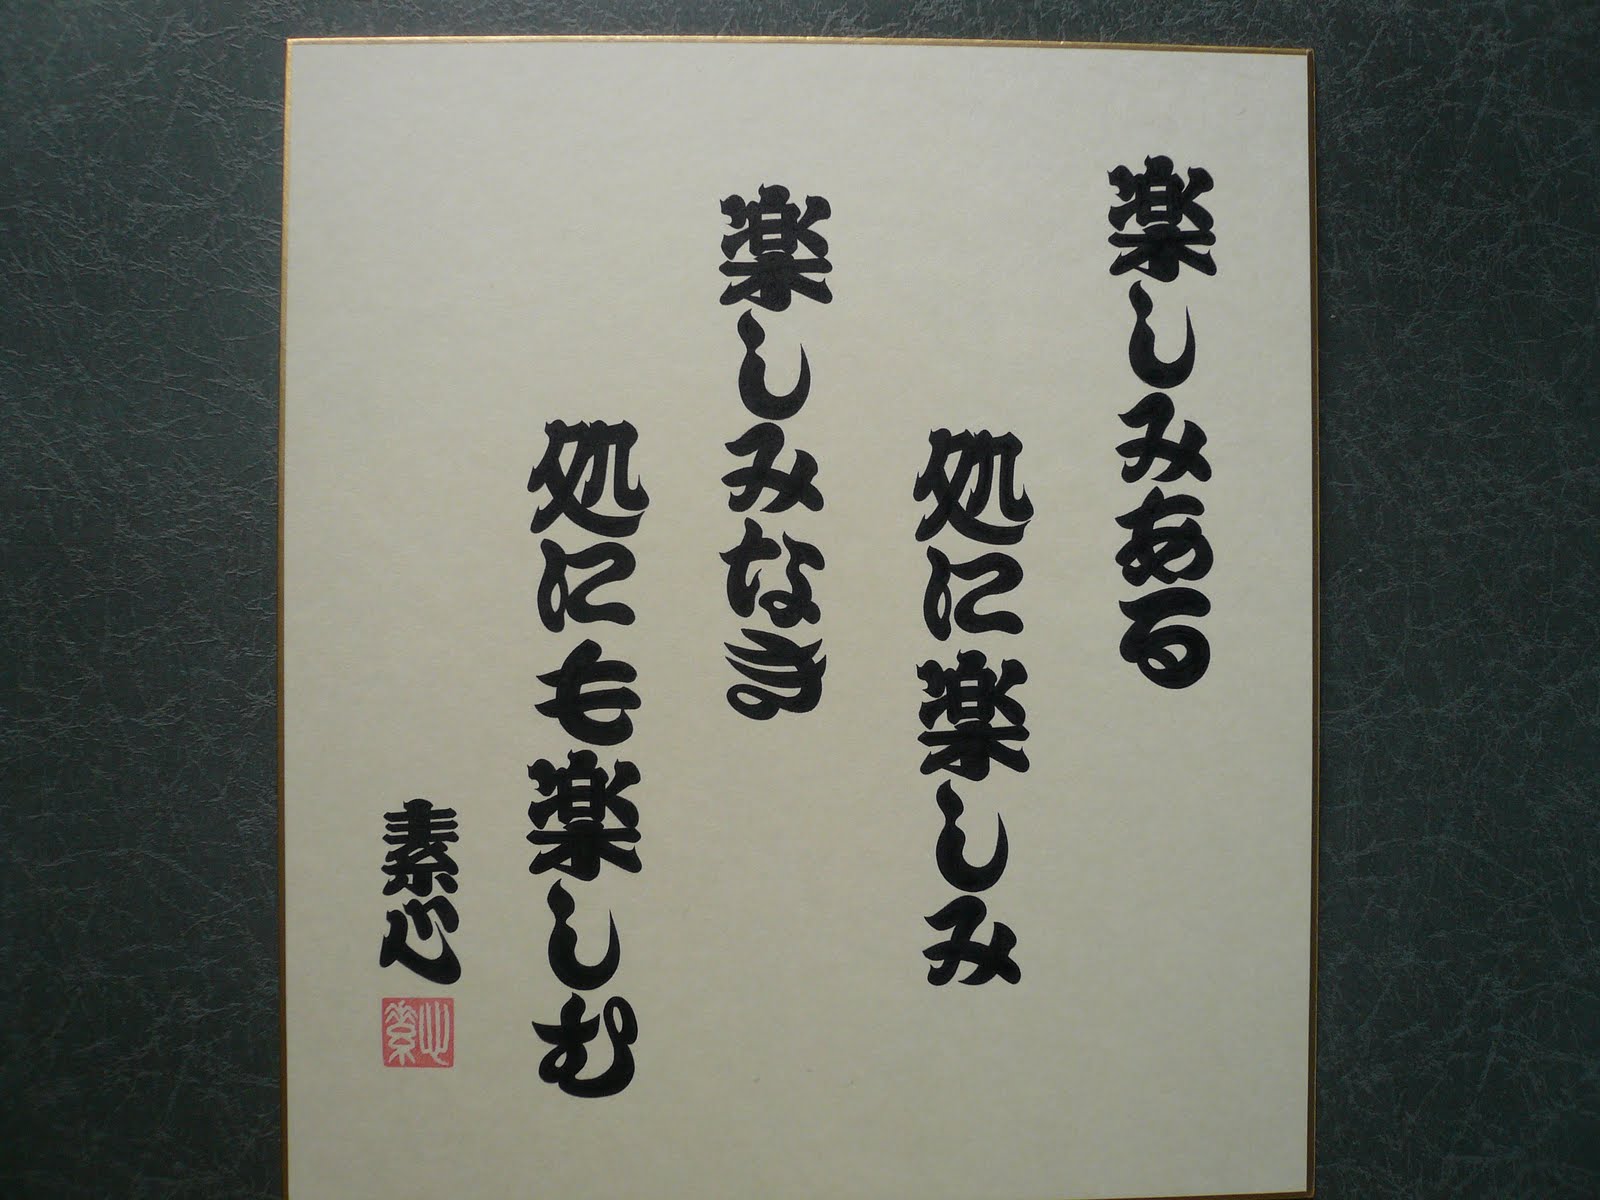 楽しみある
処に楽しみ
楽しみなき
処にも楽しむ
素心
素心